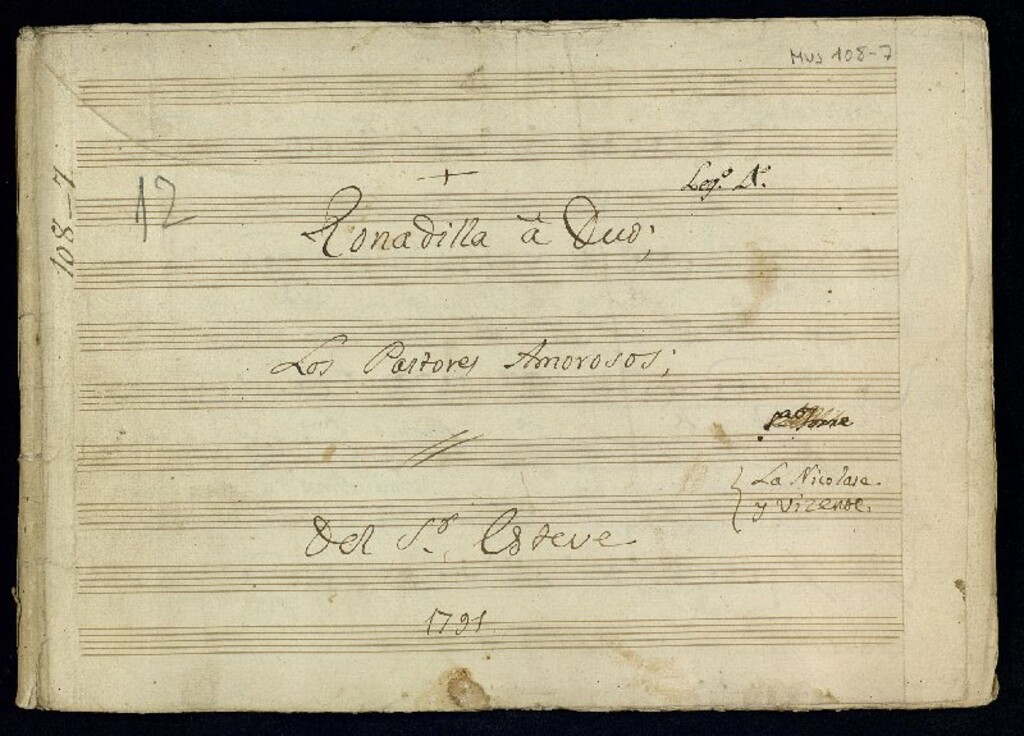 Mus 108-7
108-7
12
+
Leg.º
Tonadilla â Duo;
Los Pastores Amorosos;
La Nicolasa.
y Vizente.
Del S.r Esteve
1791